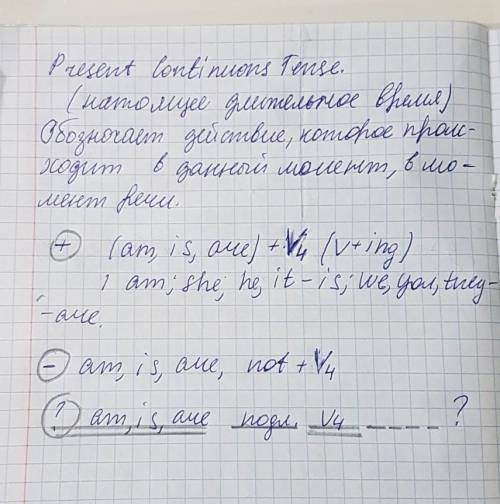 Present Continuous Tense.
(настоящее длительное время)
Обозночает действие, которое проис-
ходит в данный момент, в мо-
мент речи.
+ (am, is, are) + V4 (v+ing)
I am; she, he, it - is; we, you, they -
- are.
- am, is, are, not + V4
? am, is, are подл. V4 ____ ?